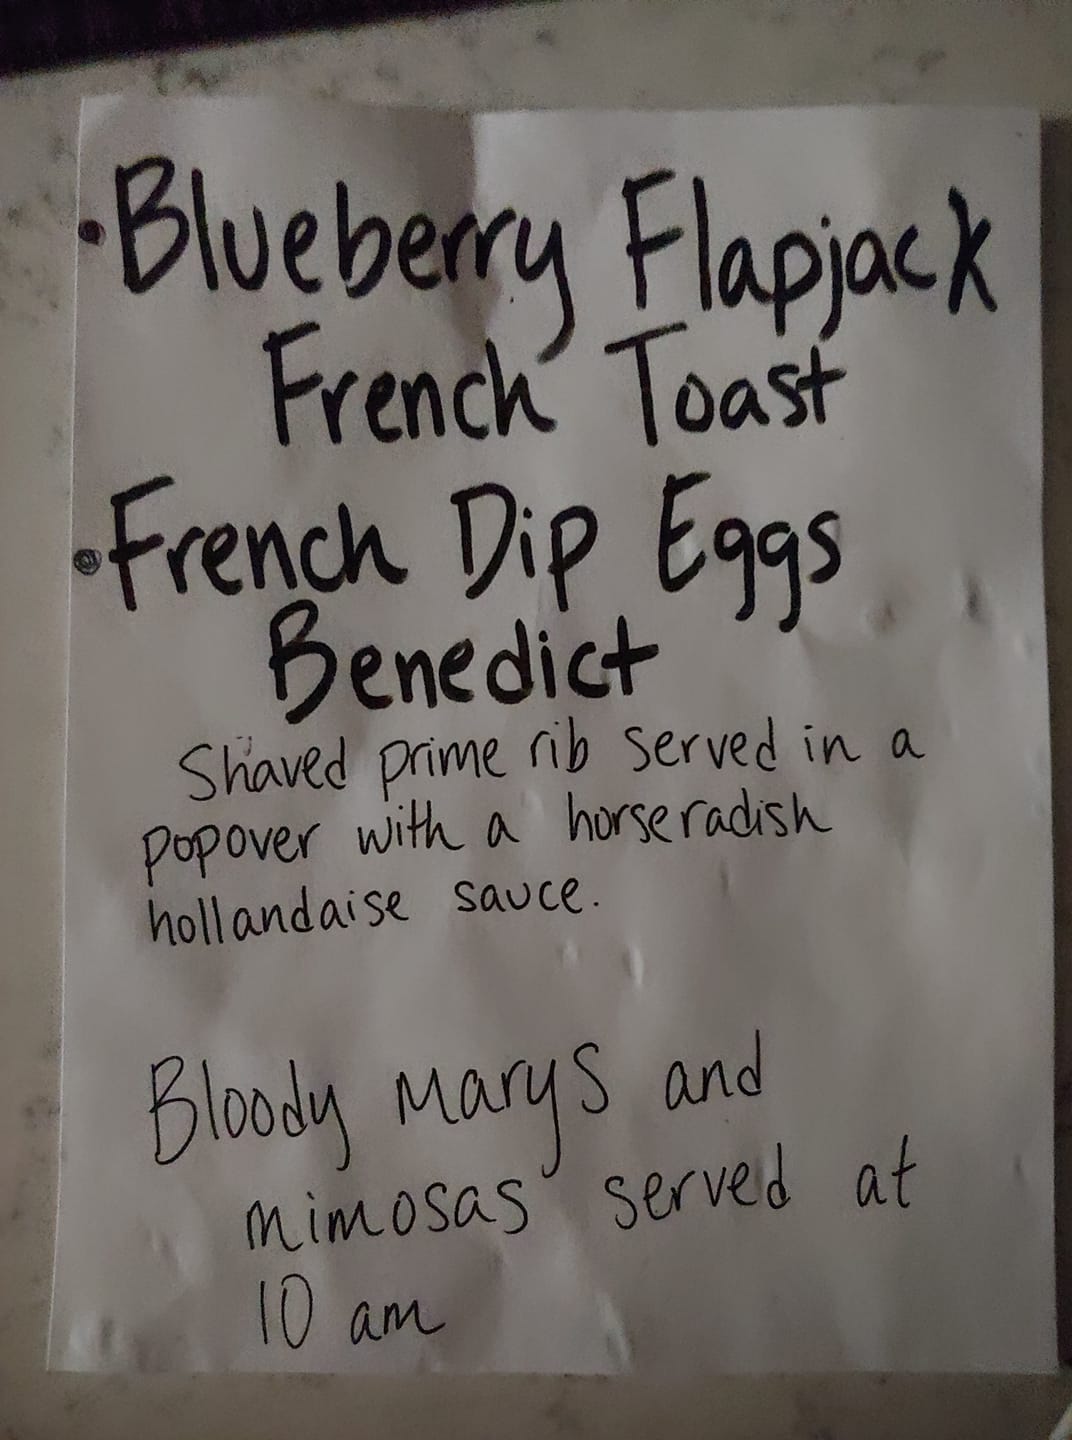 • Blueberry Flapjack
French Toast
• French Dip Eggs
Benedict
Shaved prime rib served in a
popover with a horseradish
hollandaise sauce.
Bloody Marys and
mimosas served at
10 am